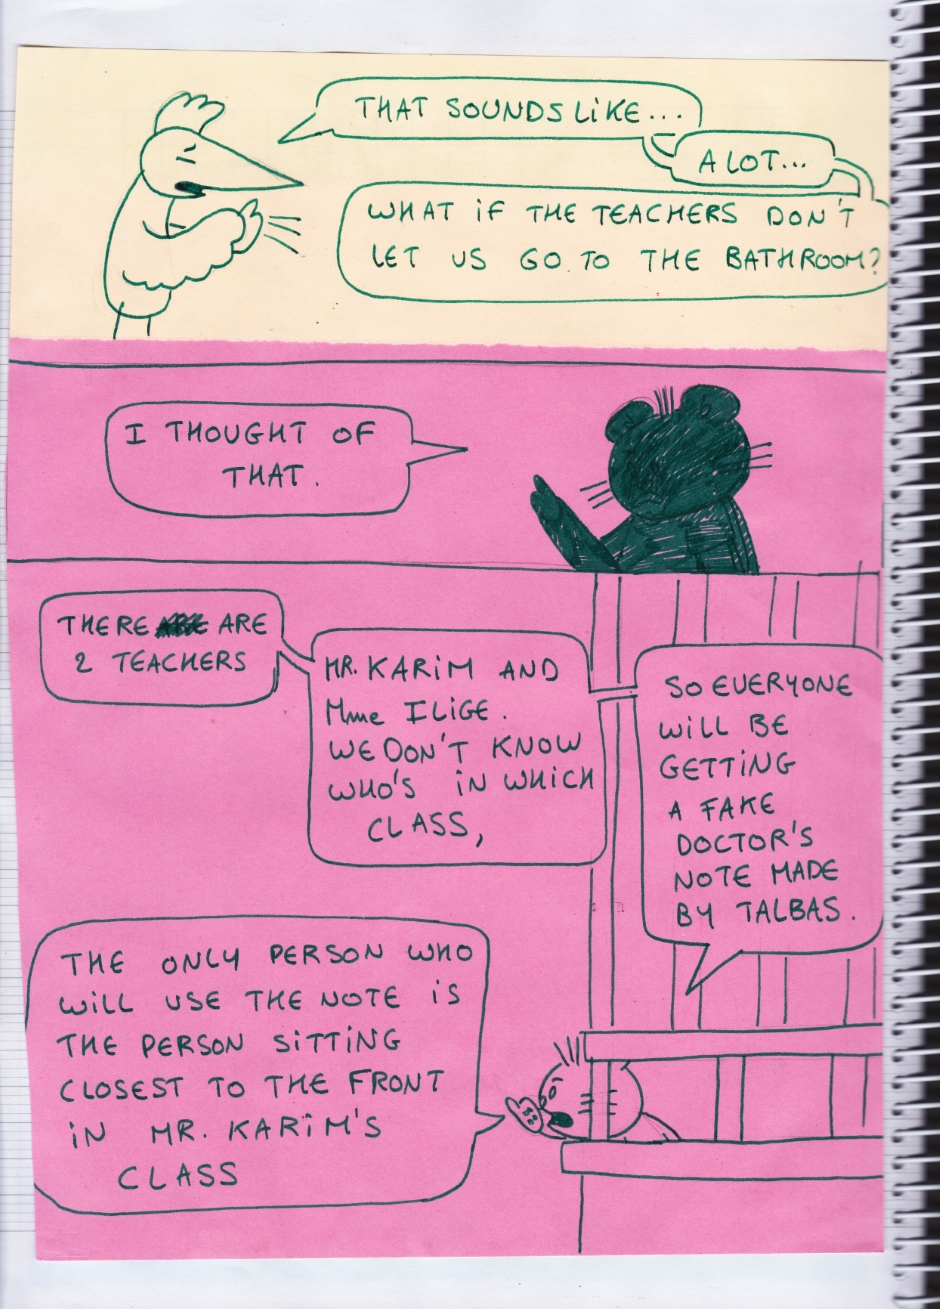 THAT SOUNDS LIKE...
A LOT...
WHAT IF THE TEACHERS DON'T
LET US GO TO THE BATHROOM?
I THOUGHT OF
THAT.
THERE ARE
2 TEACHERS
MR. KARIM AND
Mme ILIGE.
WE DON'T KNOW
WHO'S IN WHICH
CLASS,
SO EVERYONE
WILL BE
GETTING
A FAKE
DOCTOR'S
NOTE MADE
BY TALBAS.
THE ONLY PERSON WHO
WILL USE THE NOTE IS
THE PERSON SITTING
CLOSEST TO THE FRONT
IN MR. KARIM'S
CLASS